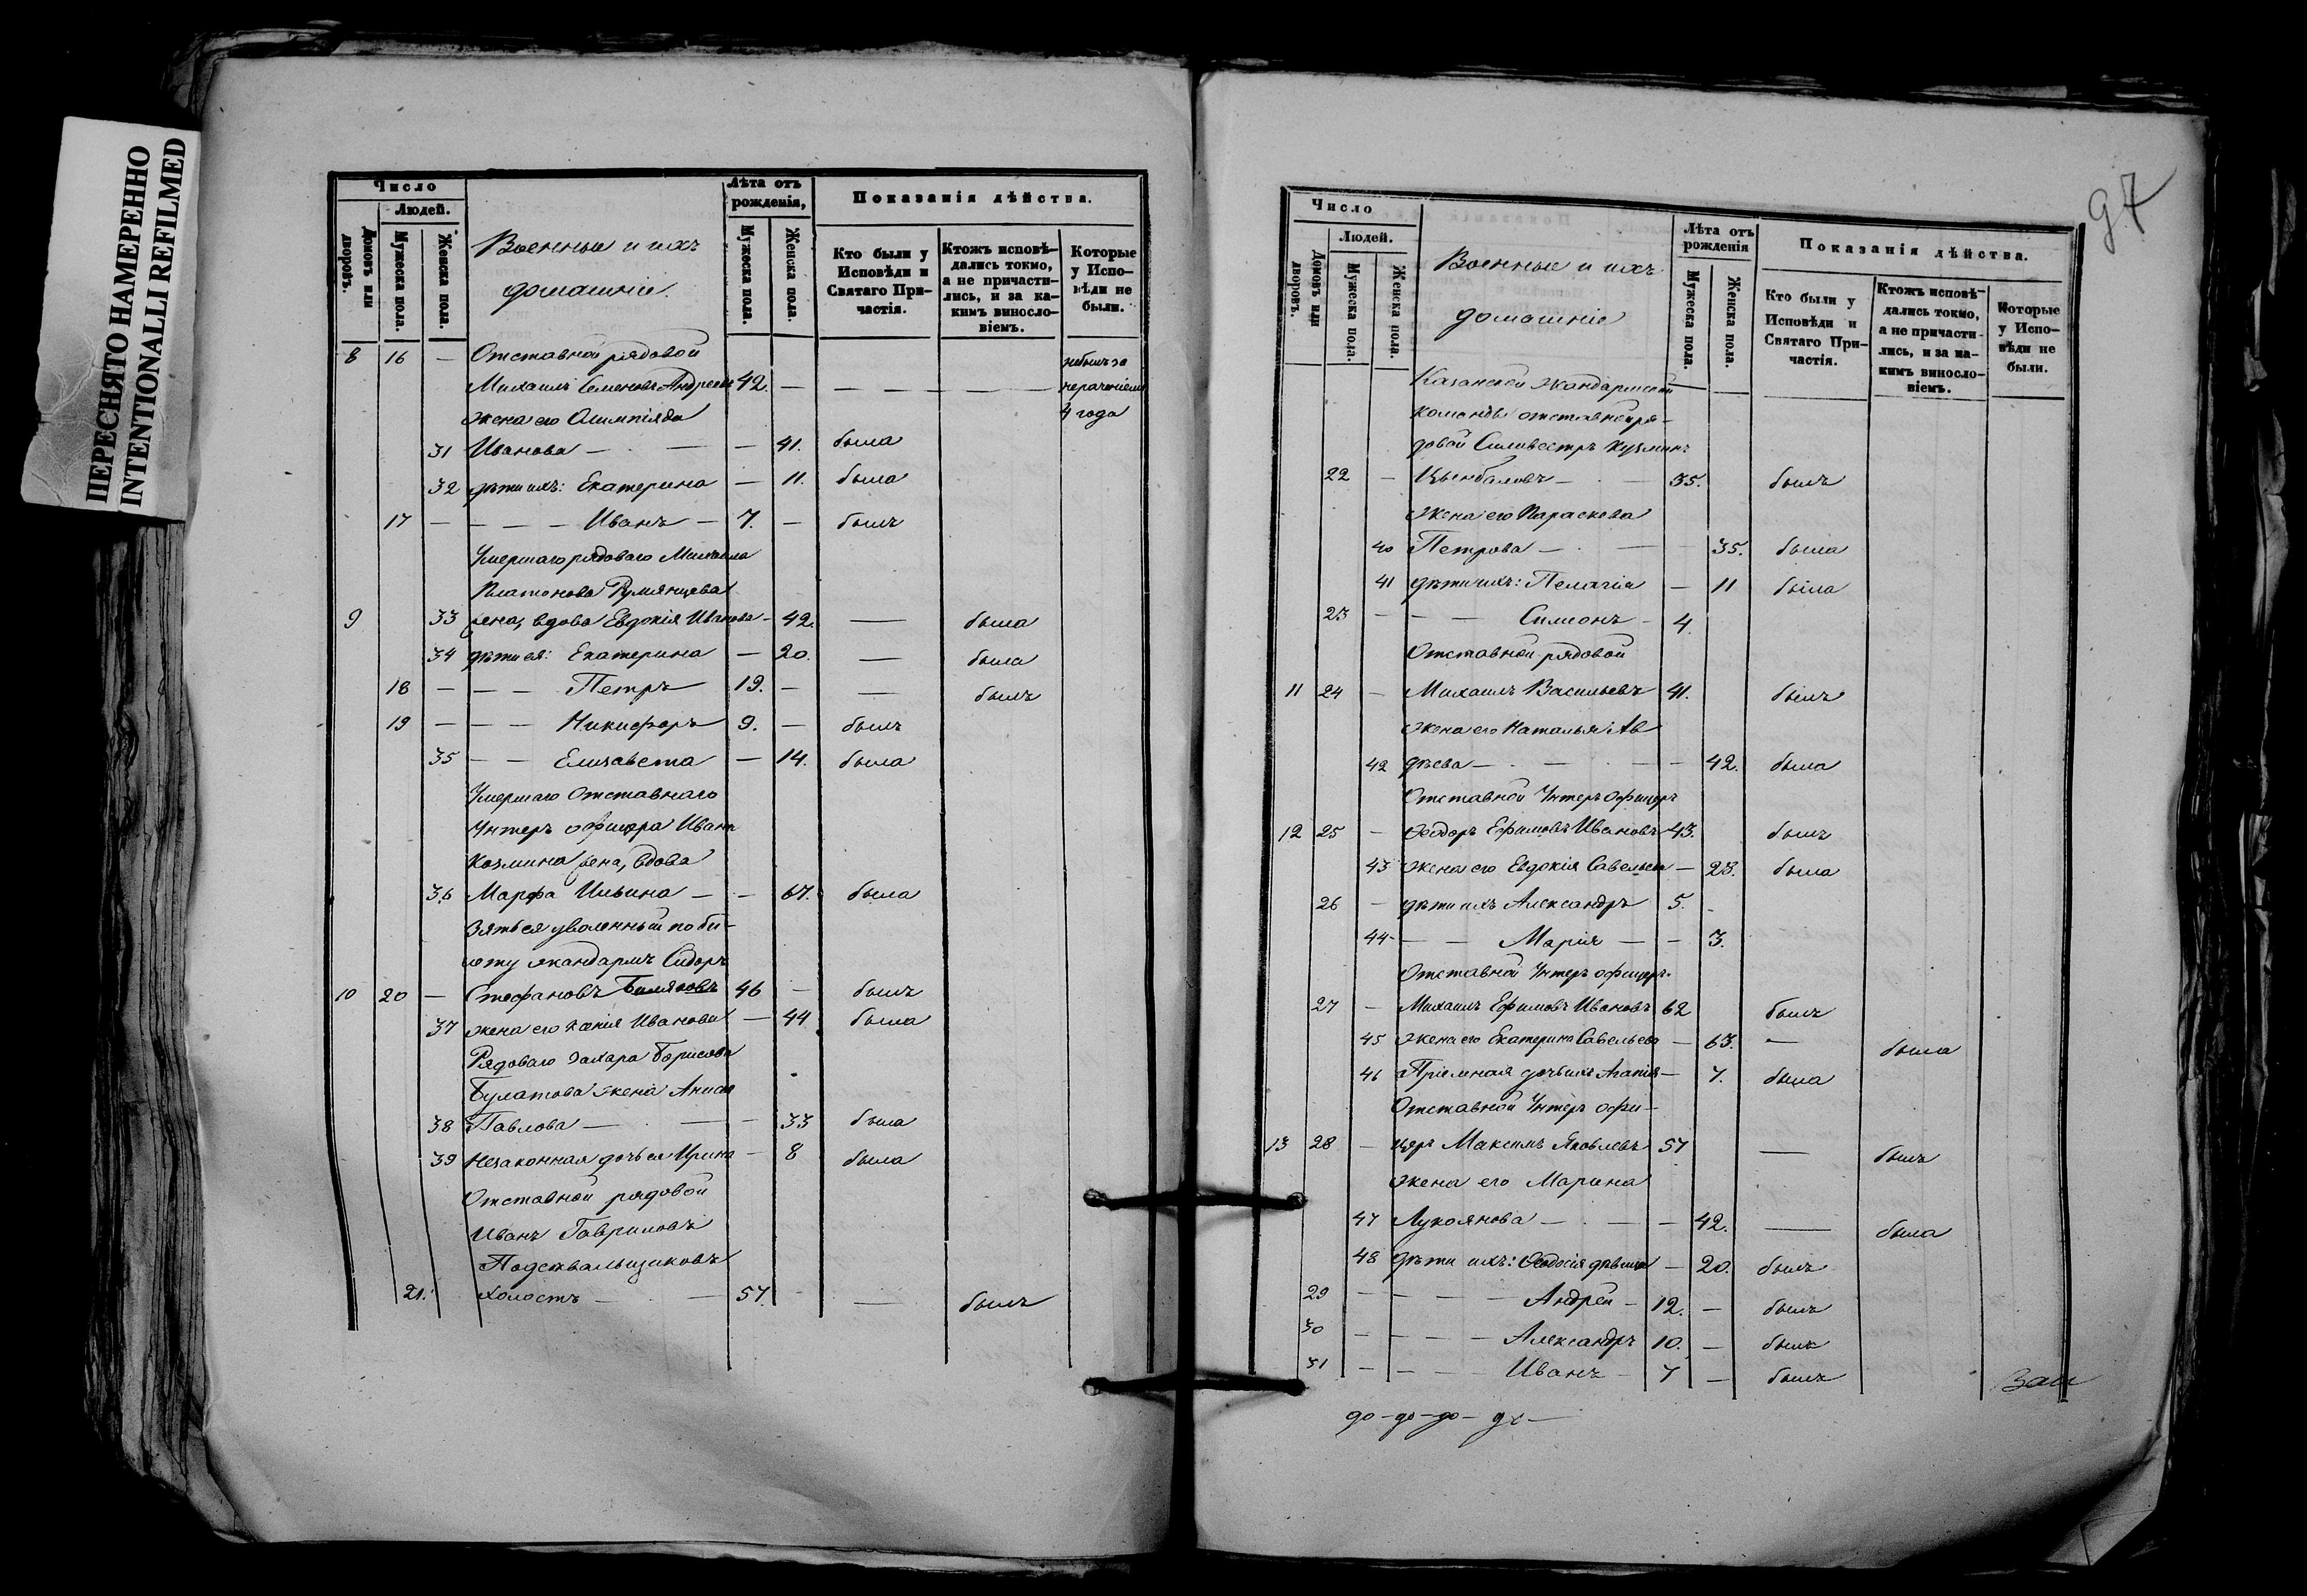 ПЕРЕСНЯТО НАМЕРЕННО
INTENTIONALLI REFILMED
Число
Людей.
Домовъ или дворовъ.
Мужеска пола.
Женска пола.
Военные и ихъ
домашніе.
Лѣта отъ рожденія,
Мужеска пола.
Женска пола.
Показанія дѣйства.
Кто были у Исповѣди и Святаго Причастія.
Ктожъ исповѣдались токмо, а не причастились, и за какимъ винословіемъ.
Которые у Исповѣди не были.
8 16 — Отставной рядовой небылъ за
Михаилъ Семеновъ Андреевъ 42. — — — — нераченіемъ
жена его Олимпіяда 4 года
31 Иванова — — — 41. была
32 дѣти ихъ: Екатерина — 11. была
17 — — — — Иванъ — 7. — былъ
Умершаго рядоваго Михаила
Платонова Румянцева
9 33 жена, вдова Евдокія Иванова — 42. — была
34 дѣти ея: Екатерина — 20. — была
18 — — — Петръ 19. — — былъ
19 — — — Никифоръ 9. — былъ
35 — — Елизавета — 14. была
Умершаго Отставнаго
Унтеръ офицера Ивана
Козмина жена, вдова
36 Марфа Ильина — — 67. была
Зять ея уволенный по би-
лету жандармъ Сидоръ
10 20 — Стефановъ 46 — былъ
37 жена его Иванова — 44 была
Рядоваго Захара Борисова
Булатова жена Анисья
38 Павлова — — — 33 была
39 Незаконная дочь ея Ирина — 8 была
Отставной рядовой
Иванъ Гавриловъ
21. холостъ — — 57. — — былъ
97
Число
Людей.
Домовъ или дворовъ.
Мужеска пола.
Женска пола.
Военные и ихъ
домашніе
Лѣта отъ рожденія
Мужеска пола.
Женска пола.
Показанія дѣйства.
Кто были у Исповѣди и Святаго Причастія.
Ктожъ исповѣдались токмо, а не причастились, и за какимъ винословіемъ.
Которые у Исповѣди не были.
Казанской жандармской
команды отставной ря-
довой Сильвестръ Кузминъ
22 — Цымбаловъ — — 35. былъ
жена его Параскева
40 Петрова — — — 35. была
41 дѣти ихъ: Пелагія — 11 была
23 — — — Симеонъ — 4.
Отставной рядовой
11 24 — Михаилъ Васильевъ 41. былъ
жена его Наталья Ав
42 дѣева — — — — 42. была
Отставной Унтеръ офицеръ
12 25 — Ѳеодоръ Ефимовъ Ивановъ 43. былъ
43 жена его Евдокія Савельева — 23. была
26 — дѣти ихъ Александръ 5. -
44 — — Марія — — 3.
Отставной Унтеръ офицеръ
27 — Михаилъ Ефимовъ Ивановъ 62 былъ
45 жена его Екатерина Савельева — 63. — была
46 Пріемная дочь ихъ Агапія — 7. была
Отставной Унтеръ офи-
13 28 — церъ Максимъ Яковлевъ 57 — былъ
жена его Марина
47 Лукоянова — — — 42. — была
48 Дѣти ихъ: Ѳеодосія дѣвица — 20. былъ
29 — — — — Андрей — 12. — былъ
30 — — — — Александръ 10. — былъ
31 — — — — Иванъ — 7 — былъ